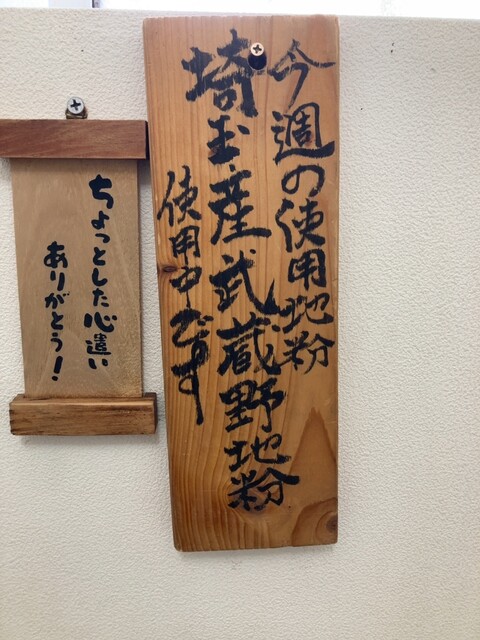 今週の使用地粉
埼玉産武蔵野地粉
使用中です
ちょっとした心遣い
ありがとう!